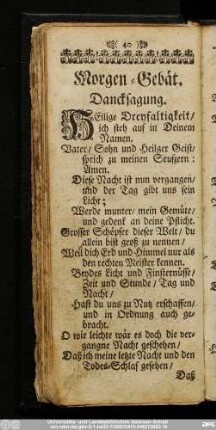 40
Morgen-Gebät.
Dancksagung.
HEilige Dreyfaltigkeit/
ich steh auf in Deinem
Namen.
Vater/ Sohn und Heilger Geist/
sprich zu meinen Seufzern:
Amen.
Diese Nacht ist nun vergangen/
und der Tag gibt uns sein
Licht;
Werde munter/ mein Gemüte/
und gedenk an deine Pflicht.
Grosser Schöpfer dieser Welt/ du
allein bist groß zu nennen/
Weil dich Erd und Himmel nur als
den rechten Meister kennen.
Beydes Licht und Finsternüsse/
Zeit und Stunde/ Tag und
Nacht/
Hast du uns zu Nutz erschaffen/
und in Ordnung auch ge-
bracht.
O wie leichte wär es doch die ver-
gangne Nacht geschehen/
Daß ich meine letzte Nacht und den
Todes-Schlaf gesehen/
Daß
Universitäts- und Landesbibliothek Sachsen-Anhalt